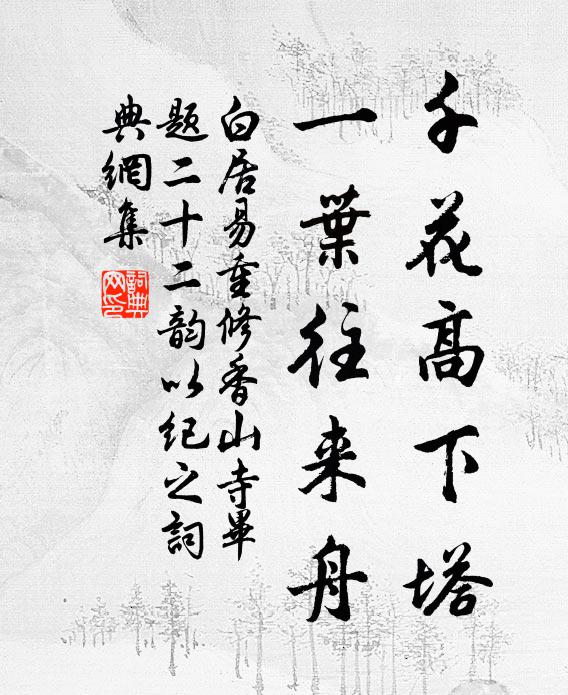 千花高下塔
一葉往来舟
白居易重修香山寺畢
题二十二韵以纪之詞
典網集
詞典網印